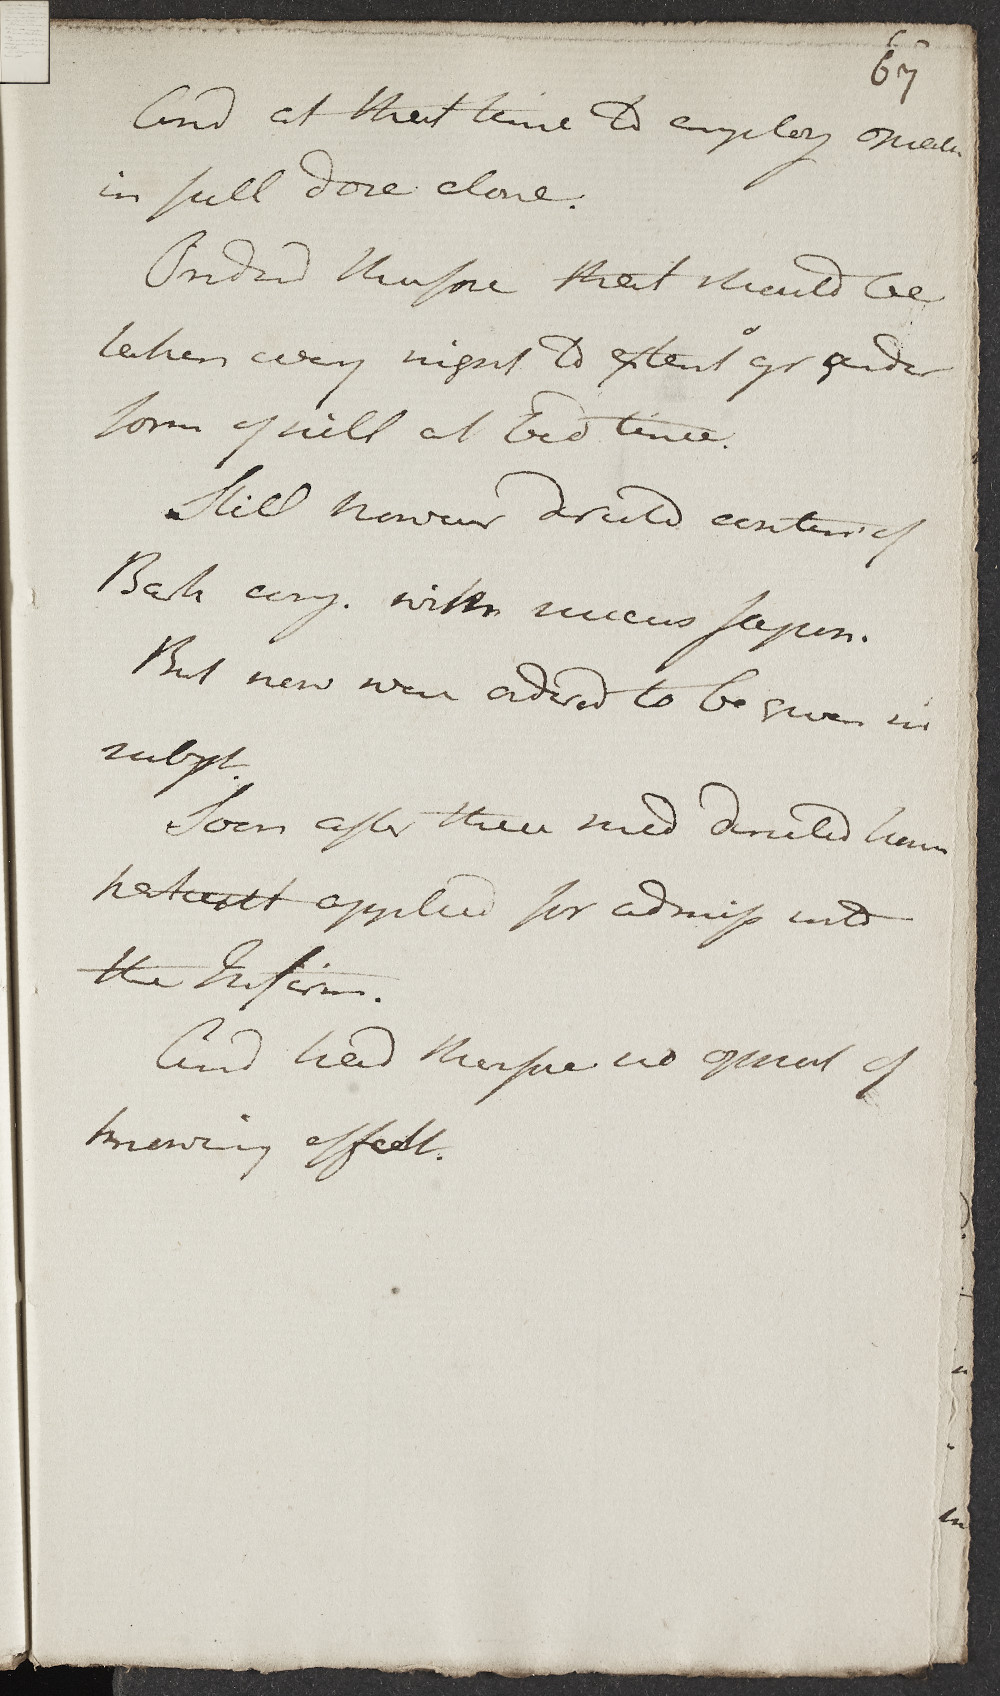 67
And at that time to employ opium
in full dose alone.
Ordered therfore that should be
taken every night to extent gr under
form of pill at bed time.
Still however directed contin of
Bark cory. with mucus Japon.
But now were ordered to be given in
subst.
Soon after these med directed however
applied for admiss into
the Infirm.
And had therfore no opport of
knowing effect.